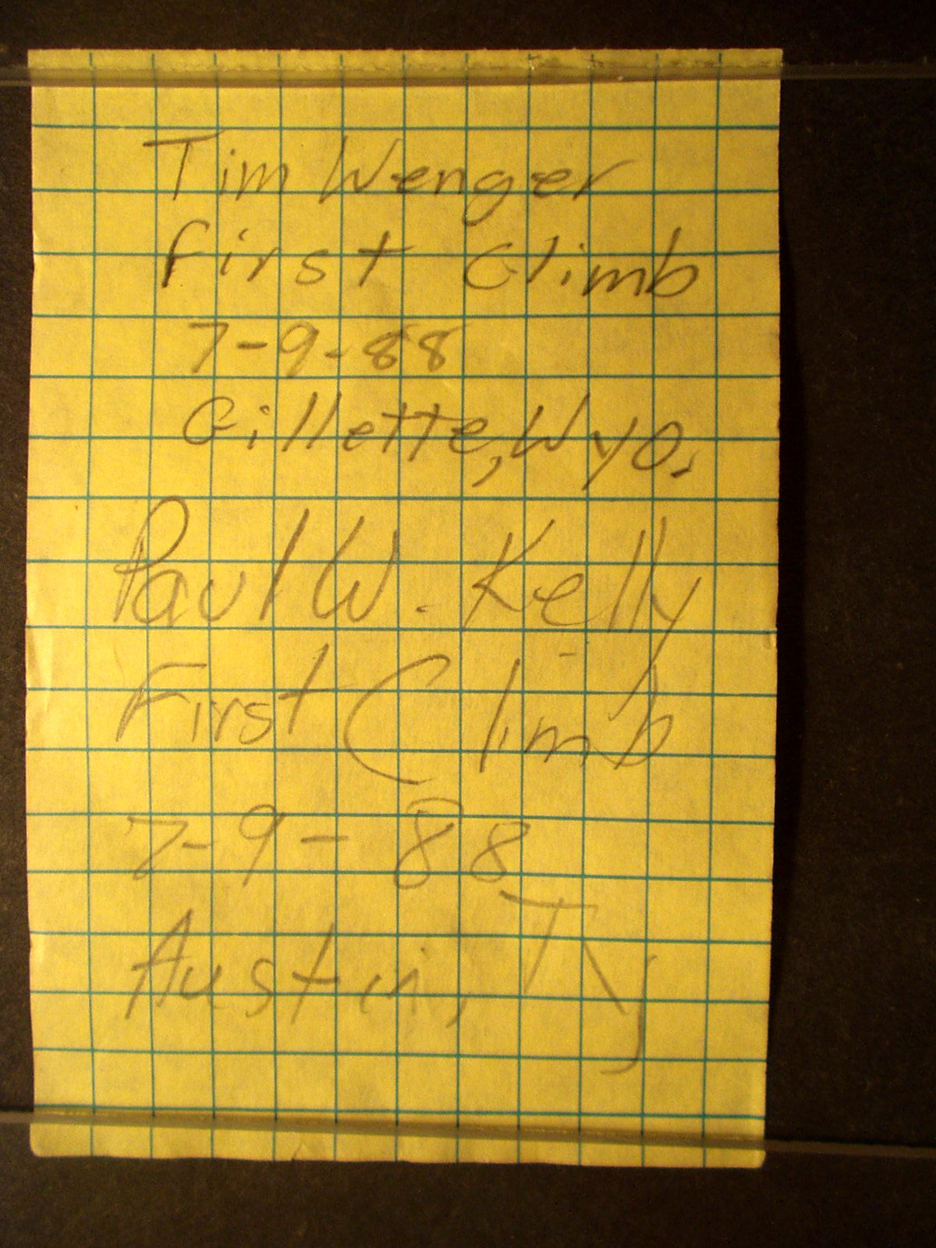 Tim Wenger
First Climb
7-9-88
Gillette, Wyo.
Paul W. Kelly
First Climb
7-9-88
Austin,